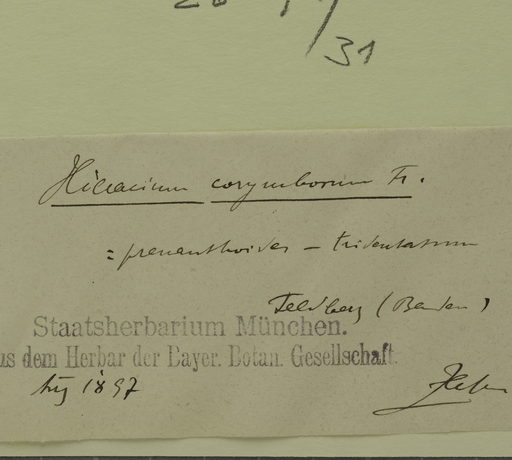 31
Hieracium corymbosum Fr.
= prenanthoides – tridentatum
Feldberg (Baden)
Staatsherbarium München.
us dem Herbar der Bayer. Botan. Gesellschaft.
Aug 1897